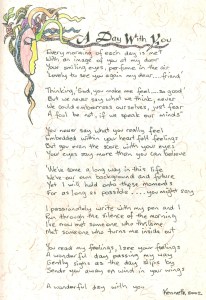 A Day With You
Every morning of each day is met
With an image of you at my door
Your smiling eyes, perfume in the air
Lovely to see you again my dear....friend
Thinking, 'God, you make me feel....so good'
But we never say what we think, never
We could embarrass ourselves, what fear
A foul be not, if we speak our minds'
You never say what you really feel
Embedded within your heart felt feelings
But you even the score with your eyes
Your eyes say more than you can believe
We've some a long way in this life
We've our own background and future
Yet I will hold onto these moments
For as long as possible.....you might say
I passionately write with my pen and I
Run through the silence of the morning
I've now met someone who thrills me
Met someone who turns me inside out
You read my feelings, I see your feelings
A wonderful day passing my way
Gently signs as the day slips by
Sends you away on wind in your wings
A wonderful day with you
Kenneth